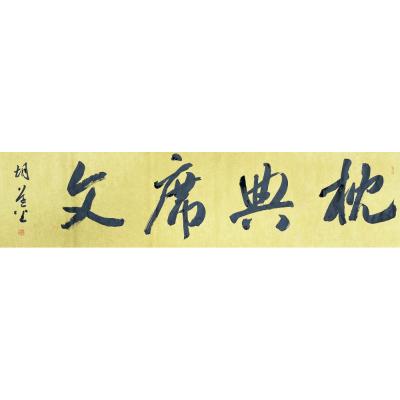 枕典席文